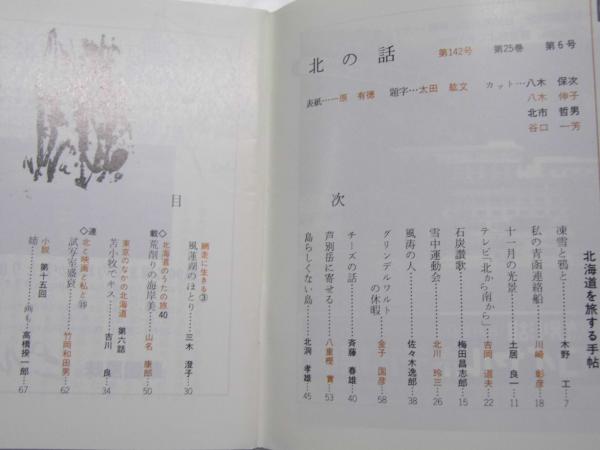 北の話 第142号 第25巻 第6号
表紙……一原 有徳 題字…太田 紘文 カット…八木 保次
八木 伸子
北市 哲男
谷口 一芳
北海道を旅する手帖
目 次
凍雪と鴉と……木野 工…7
私の青函連絡船……川崎 彰彦…18
十一月の光景……土居 良一…11
テレビ「北から南から」……吉岡 道夫…22
石炭讃歌……梅田昌志郎…15
雪中運動会……北川 玲三…26
風涛の人……佐々木逸郎…38
グリンデルワルトの休暇……金子 国彦…58
チーズの話……斉藤 春雄…40
芦別岳に寄せる……八重樫 實…53
島らしくない島……北洞 孝雄…45
網走に生きる③
風蓮湖のほとり……三木 澄子…30
◇連載◇
北海道のうたの旅 40
荒削りの海岸美……山名 康郎…50
東京のなかの北海道 第六話
苫小牧でキス……吉川 良…34
北と映画と私と
試写室盛衰……竹岡和田男…62
小説 第十五回
姉……高橋揆一郎…67